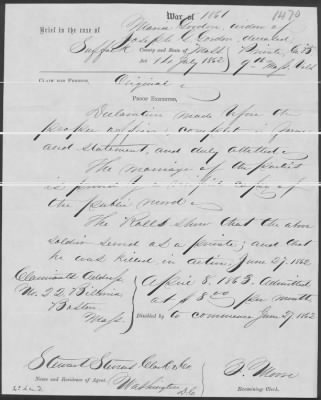 War of 1861
1470
Brief in the case of Maria Gordon, widow of
Joseph Gordon deceased
Suffolk County and State of Mass Private, Co. B
Act 14 July 1862 9th Mass. Vols
CLAIM FOR PENSION, Original
PROOF EXHIBITED,
Declaration made before the
proper officer; complete in form
and statement, and duly attested
The marriage of the parties
is proved by copy of
the public record
The Rolls show that the above
soldier served as a private; and that
he was killed in action June 27, 1862.
Claimant's Address April 8, 1863. Admitted
No. 22 at $8.00 per month,
Boston
Mass. Disabled by to commence June 27, 1862
Stewart Stevens Clark & Co.
Name and Residence of Agent. Washington D.C.
Moore
Examining Clerk.